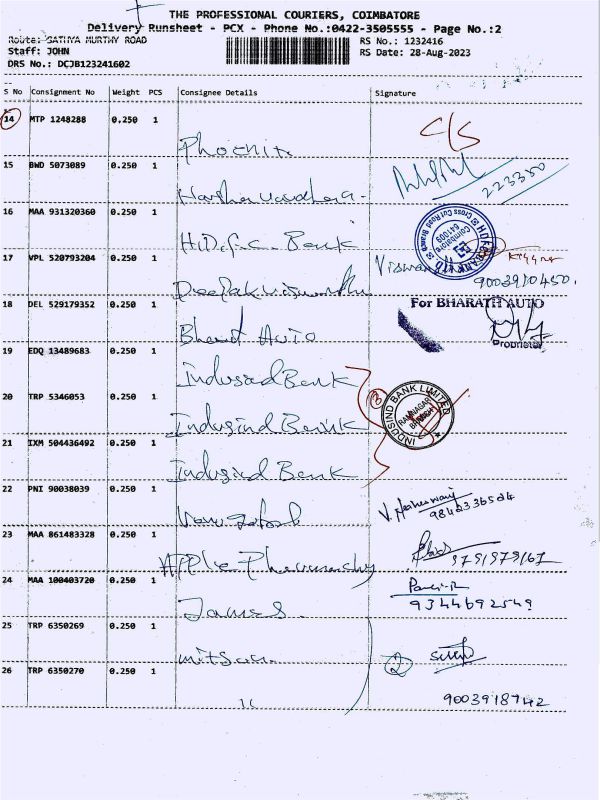 THE PROFESSIONAL COURIERS, COIMBATORE
Delivery Runsheet - PCX - Phone No.:0422-3505555 - Page No.:2
Route: SATHYA MURTHY ROAD
Staff: JOHN
DRS No.: DCJB123241602
RS No.: 1232416
RS Date: 28-Aug-2023
S No Consignment No Weight PCS Consignee Details Signature
14 MTP 1248288 0.250 1 Phoenix C/S
15 BWD 5073089 0.250 1 Harshavardhana 223350
16 MAA 931320360 0.250 1 H.D.f.c. Bank
17 VPL 520793204 0.250 1 Deepak Viswanathan Viswan 9003910450.
18 DEL 529179352 0.250 1 Bharat Auto For BHARATH AUTO
Proprietor
19 EDQ 13489683 0.250 1 Indusind Bank
20 TRP 5346053 0.250 1 Indusind Bank 3 INDUSIND BANK LIMITED
21 IXM 504436492 0.250 1 Indusind Bank
22 PNI 90038039 0.250 1 9843336504
23 MAA 861483328 0.250 1 Apple Pharmacy 9791979167
24 MAA 100403720 0.250 1 James. 9344692549
25 TRP 6350269 0.250 1 mitsan. 2
26 TRP 6350270 0.250 1 11 9003918742